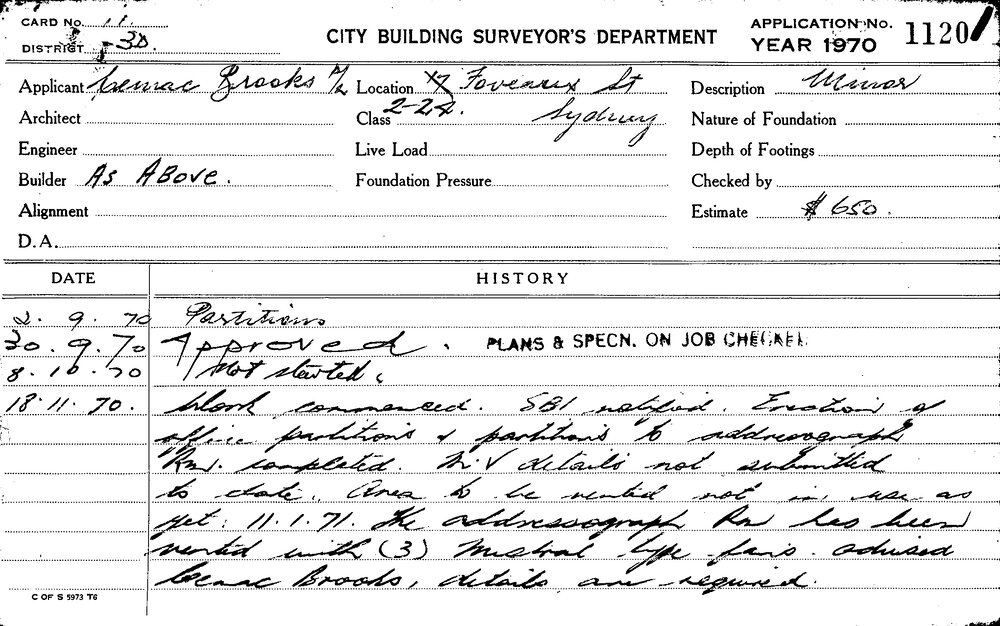 CARD No. 11.
DISTRICT 3D.
CITY BUILDING SURVEYOR'S DEPARTMENT
APPLICATION No. 1120
YEAR 1970
Applicant Cemac Brooks P/L
Location Foveaux St
Description Minor
Architect
Class 2-22. Sydney
Nature of Foundation
Engineer
Live Load
Depth of Footings
Builder As Above.
Foundation Pressure
Checked by
Alignment
Estimate $ 650.
D.A.
DATE HISTORY
2. 9. 70 Partitions
30. 9. 70 Approved. PLANS & SPECN. ON JOB CHECKED.
8. 10. 70 Not started.
18. 11. 70. Work commenced. SBI notified. Erection of
office partitions & partitions to addressograph
Rm. completed. M.V details not submitted
to date. Area to be vented not in use as
yet. 11.1.71. The addressograph Rm has been
vented with (3) Mistral type fans. advised
Cemac Brooks, details are required.
C OF S 5973 T6